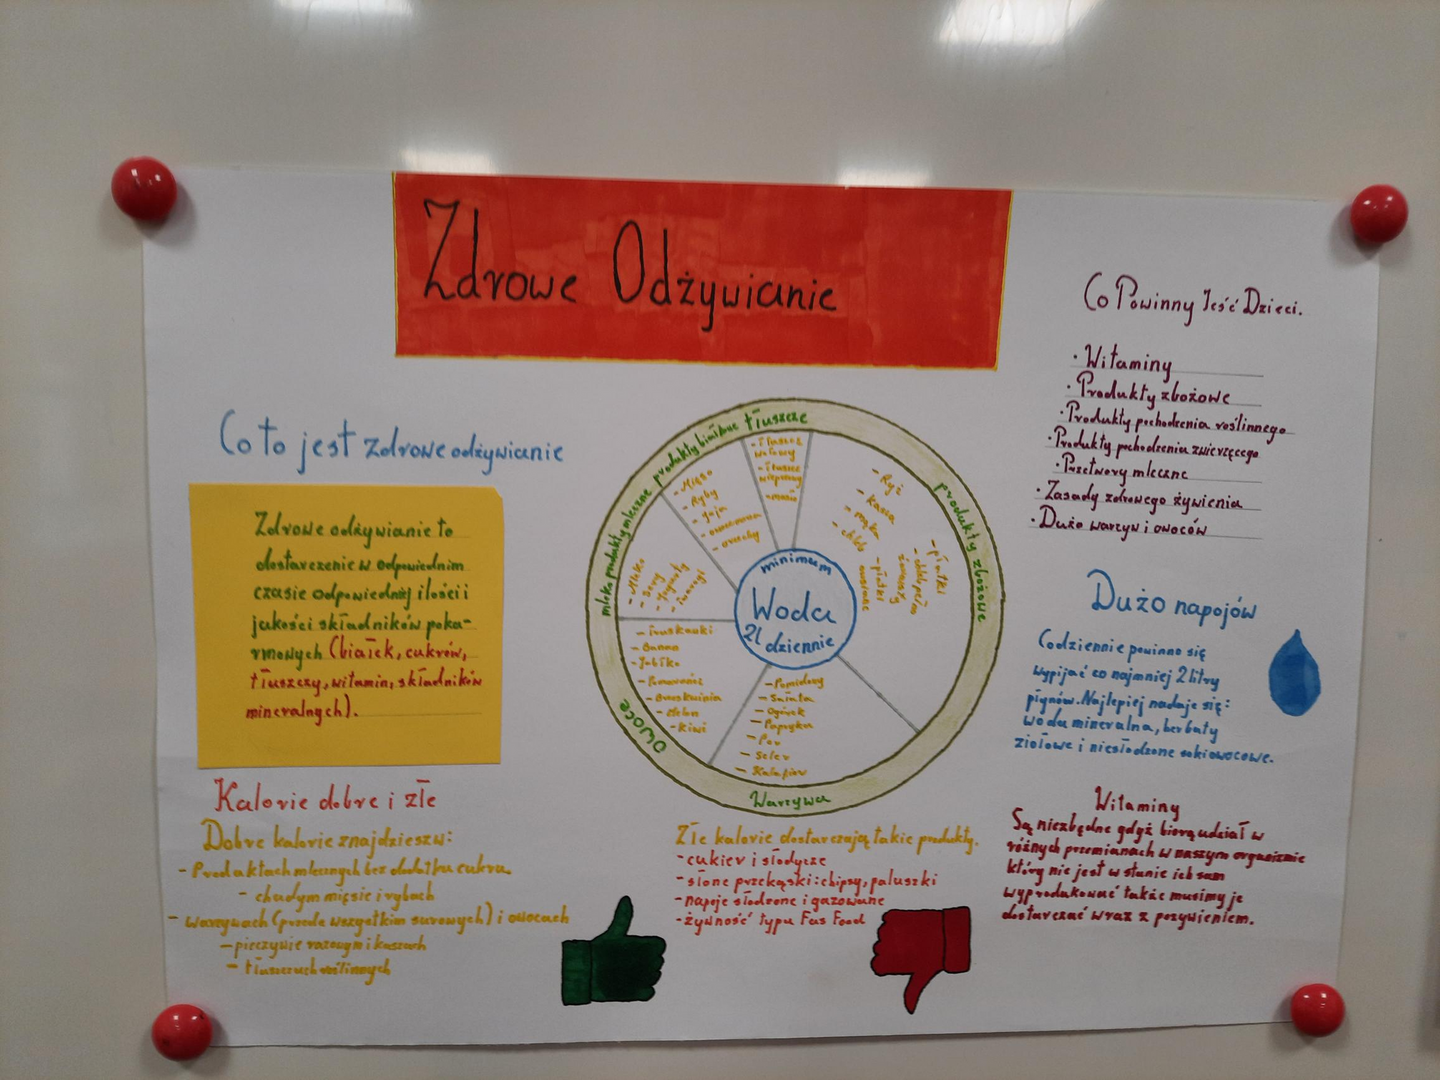 Zdrowe Odżywianie
Co to jest zdrowe odżywianie
Zdrowe odżywianie to
dostarczenie w odpowiednim
czasie odpowiedniej ilości i
jakości składników poka-
rmowych (białek, cukrów,
tłuszczy, witamin, składników
mineralnych).
Kalorie dobre i złe
Dobre kalorie znajdziesz w:
- Produktach mlecznych bez dodatku cukru.
- chudym mięsie i rybach
- warzywach (przede wszystkim surowych) i owocach
- pieczywie razowym i kaszach
- tłuszczach roślinnych
mleko produkty mleczne
produkty białkowe
tłuszcze
produkty zbożowe
Warzywa
Owoce
- Mleko
- Sery
- Jogurty
- Mięso
- Ryby
- Jaja
- orzechy
- tłuszcz
wołowy
- tłuszcz
wieprzowy
- masło
- Ryż
- Kasza
- mąka
- chleb
- płatki
owsiane
- płatki
- Truskawki
- Banan
- Jabłko
- Pomarańcz
- Brzoskwinia
- Melon
- Kiwi
- Pomidory
- Sałata
- Ogórek
- Papryka
- Por
- Seler
- Kalafior
minimum
Woda
2l dziennie
Złe kalorie dostarczają takie produkty.
- cukier i słodycze
- słone przekąski: chipsy, paluszki
- napoje słodzone i gazowane
- żywność typu Fas Food
Co Powinny Jeść Dzieci.
· Witaminy
· Produkty zbożowe
· Produkty pochodzenia roślinnego
· Produkty pochodzenia zwierzęcego
· Przetwory mleczne
· Zasady zdrowego żywienia
· Dużo warzyw i owoców
Dużo napojów
Codziennie powinno się
wypijać co najmniej 2 litry
płynów. Najlepiej nadaje się:
woda mineralna, herbaty
ziołowe i niesłodzone soki owocowe.
Witaminy
Są niezbędne gdyż biorą udział w
różnych przemianach w naszym organizmie
który nie jest w stanie ich sam
wyprodukować także musimy je
dostarczać wraz z pożywieniem.